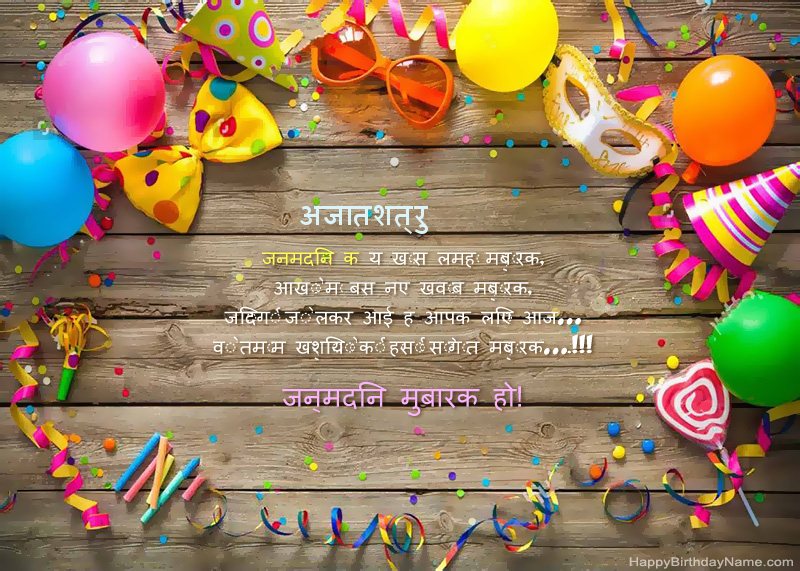 अजातशत्रु
जनमदनि क य खास लमह मबारक,
आखों म बस नए खवाब मबारक,
जदिगी जो लेकर आई ह आपक लएि आज...
वो तमाम खशयिों की हसीं सौगात मबारक...!!!
जन्मदनि मुबारक हो!
HappyBirthdayName.com